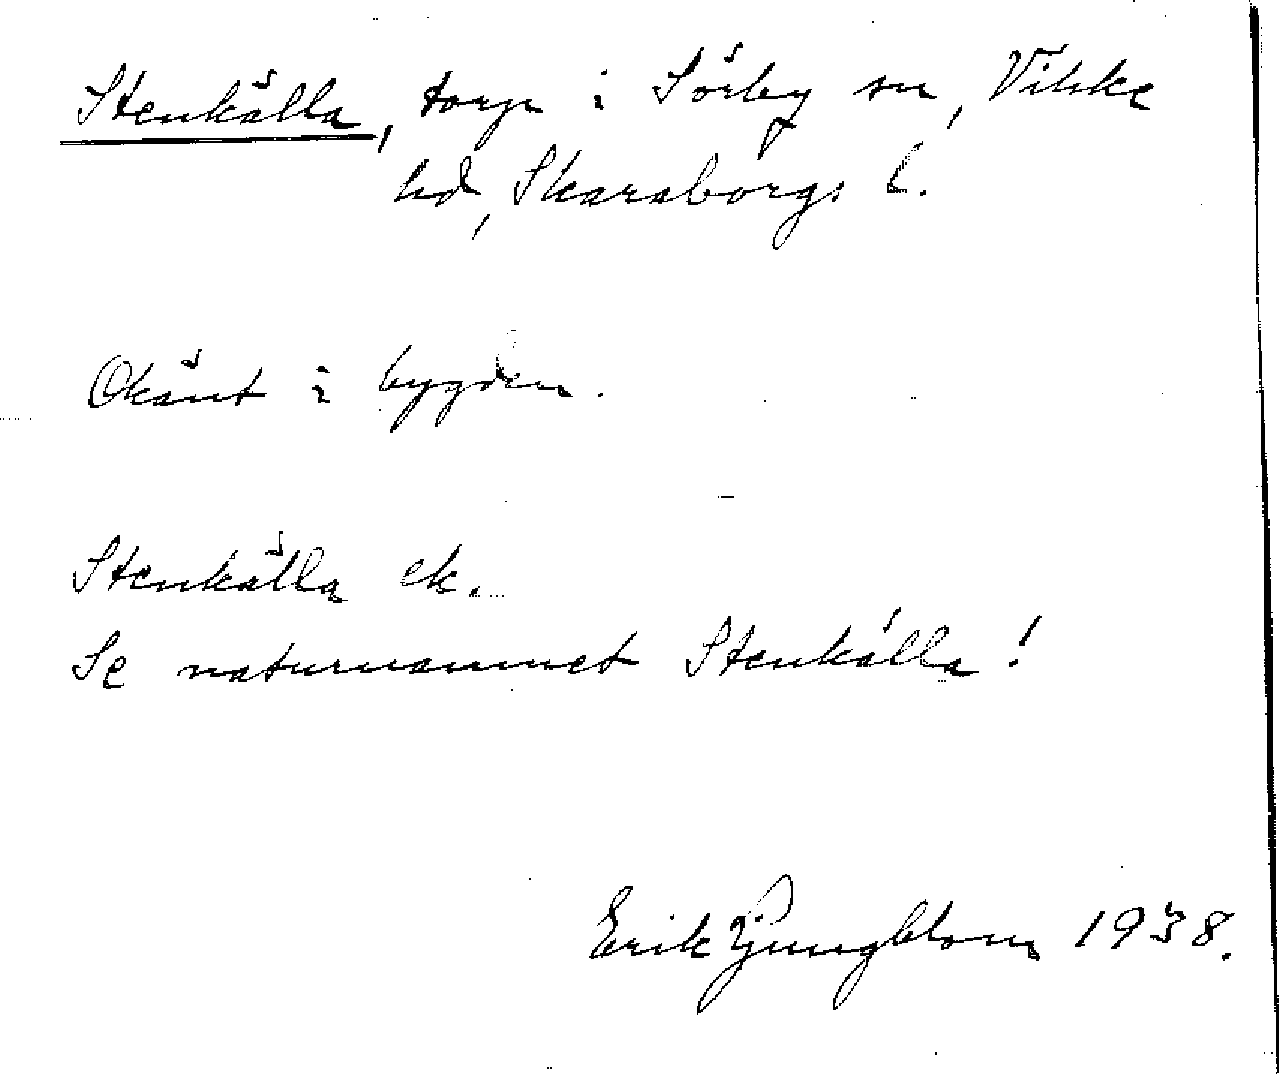 Stenkälla, torp i Sörby sn, Vilske
hd, Skaraborgs l.
Okänt i bygden.
Stenkälla ek.
Se naturnamnet Stenkälla!
Erik Ljungblom 1938.